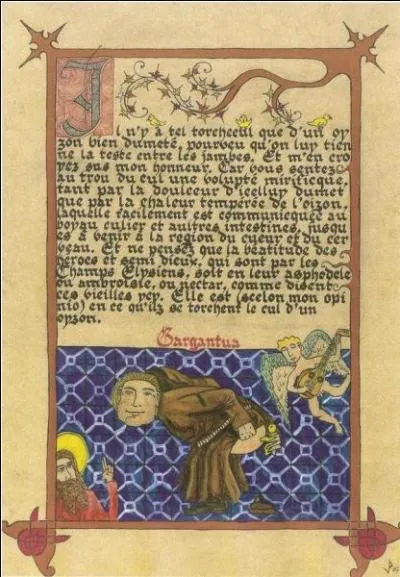 Il n'y a tel torchecul que d'un oy
zon bien dumeté, pourveu qu'on luy tien
ne la teste entre les jambes. Et m'en cro
yez sus mon honneur. Car vous sentez
au trou du cul une volupté mirificque,
tant par la doulceur d'icelluy dumet
que par la chaleur tempérée de l'oizon,
laquelle facilement est communicquée au
boyau culier et aultres intestines, jusqu
es à venir à la région du cueur et du cer
veau. Et ne pensez que la béatitude des
heroes et semi dieux, qui sont par les
Champs Elysiens, soit en leur asphodele
ou ambroisie, ou nectar, comme disent
ces vieilles ycy. Elle est (scelon mon opi
nio) en ce qu'ilz se torchent le cul d'un
oyzon.
Gargantua